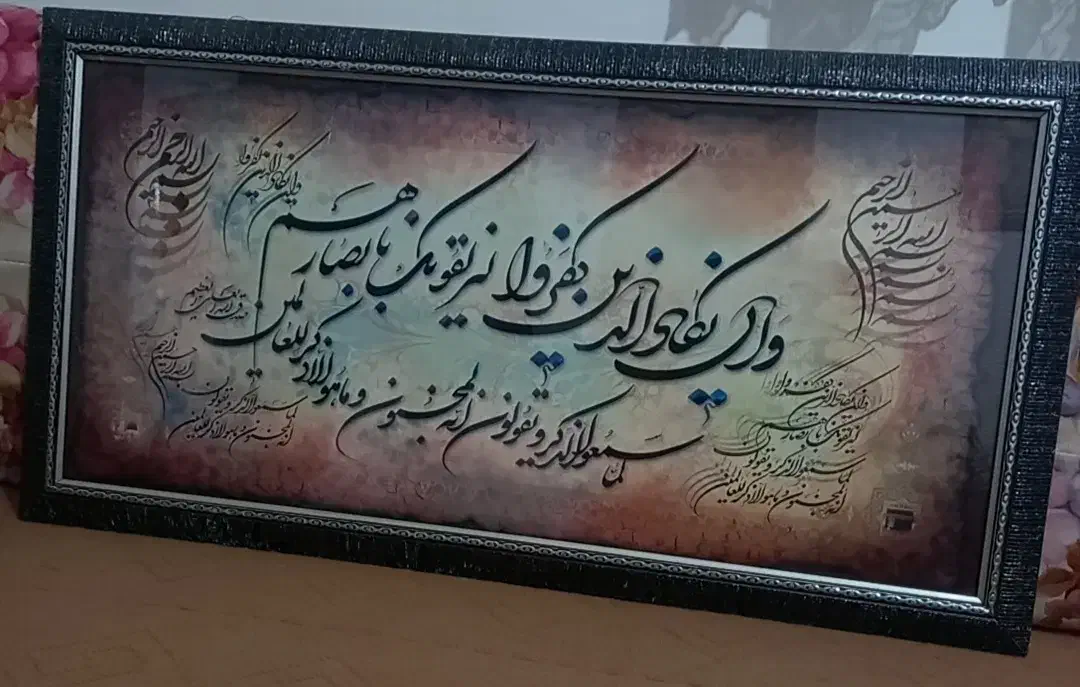 بسم الله الرحمن الرحیم
وان یکاد الذین کفروا لیزلقونک بابصارهم
لما سمعوا الذکر و یقولون انه لمجنون و ما هو الا ذکر للعالمین
بسم الله الرحمن الرحیم
وان یکاد الذین کفروا
صدق الله العلی العظیم
بسم الله الرحمن الرحیم
لما سمعوا الذکر و یقولون
انه لمجنون و ما هو الا ذکر للعالمین
وان یکاد الذین کفروا
لیزلقونک بابصارهم
لما سمعوا الذکر و یقولون
انه لمجنون و ما هو الا ذکر للعالمین